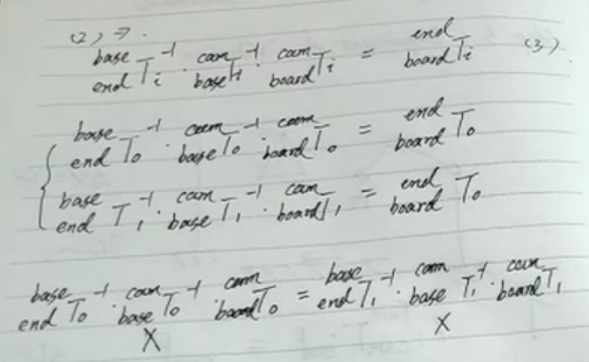 (2) ⇒.
^{base}_{end}T_i^{-1} · ^{cam}_{base}T_i^{-1} · ^{cam}_{board}T_i = ^{end}_{board}T_i (3).
{ ^{base}_{end}T_0^{-1} · ^{cam}_{base}T_0^{-1} · ^{cam}_{board}T_0 = ^{end}_{board}T_0
^{base}_{end}T_1^{-1} · ^{cam}_{base}T_1^{-1} · ^{cam}_{board}T_1 = ^{end}_{board}T_0
^{base}_{end}T_0^{-1} · ^{cam}_{base}T_0^{-1} · ^{cam}_{board}T_0 = ^{base}_{end}T_1^{-1} · ^{cam}_{base}T_1^{-1} · ^{cam}_{board}T_1
X X